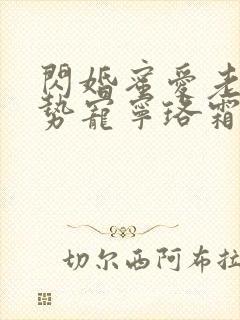 閃婚蜜愛老
勢寵寧珞霜
切尔西阿布拉